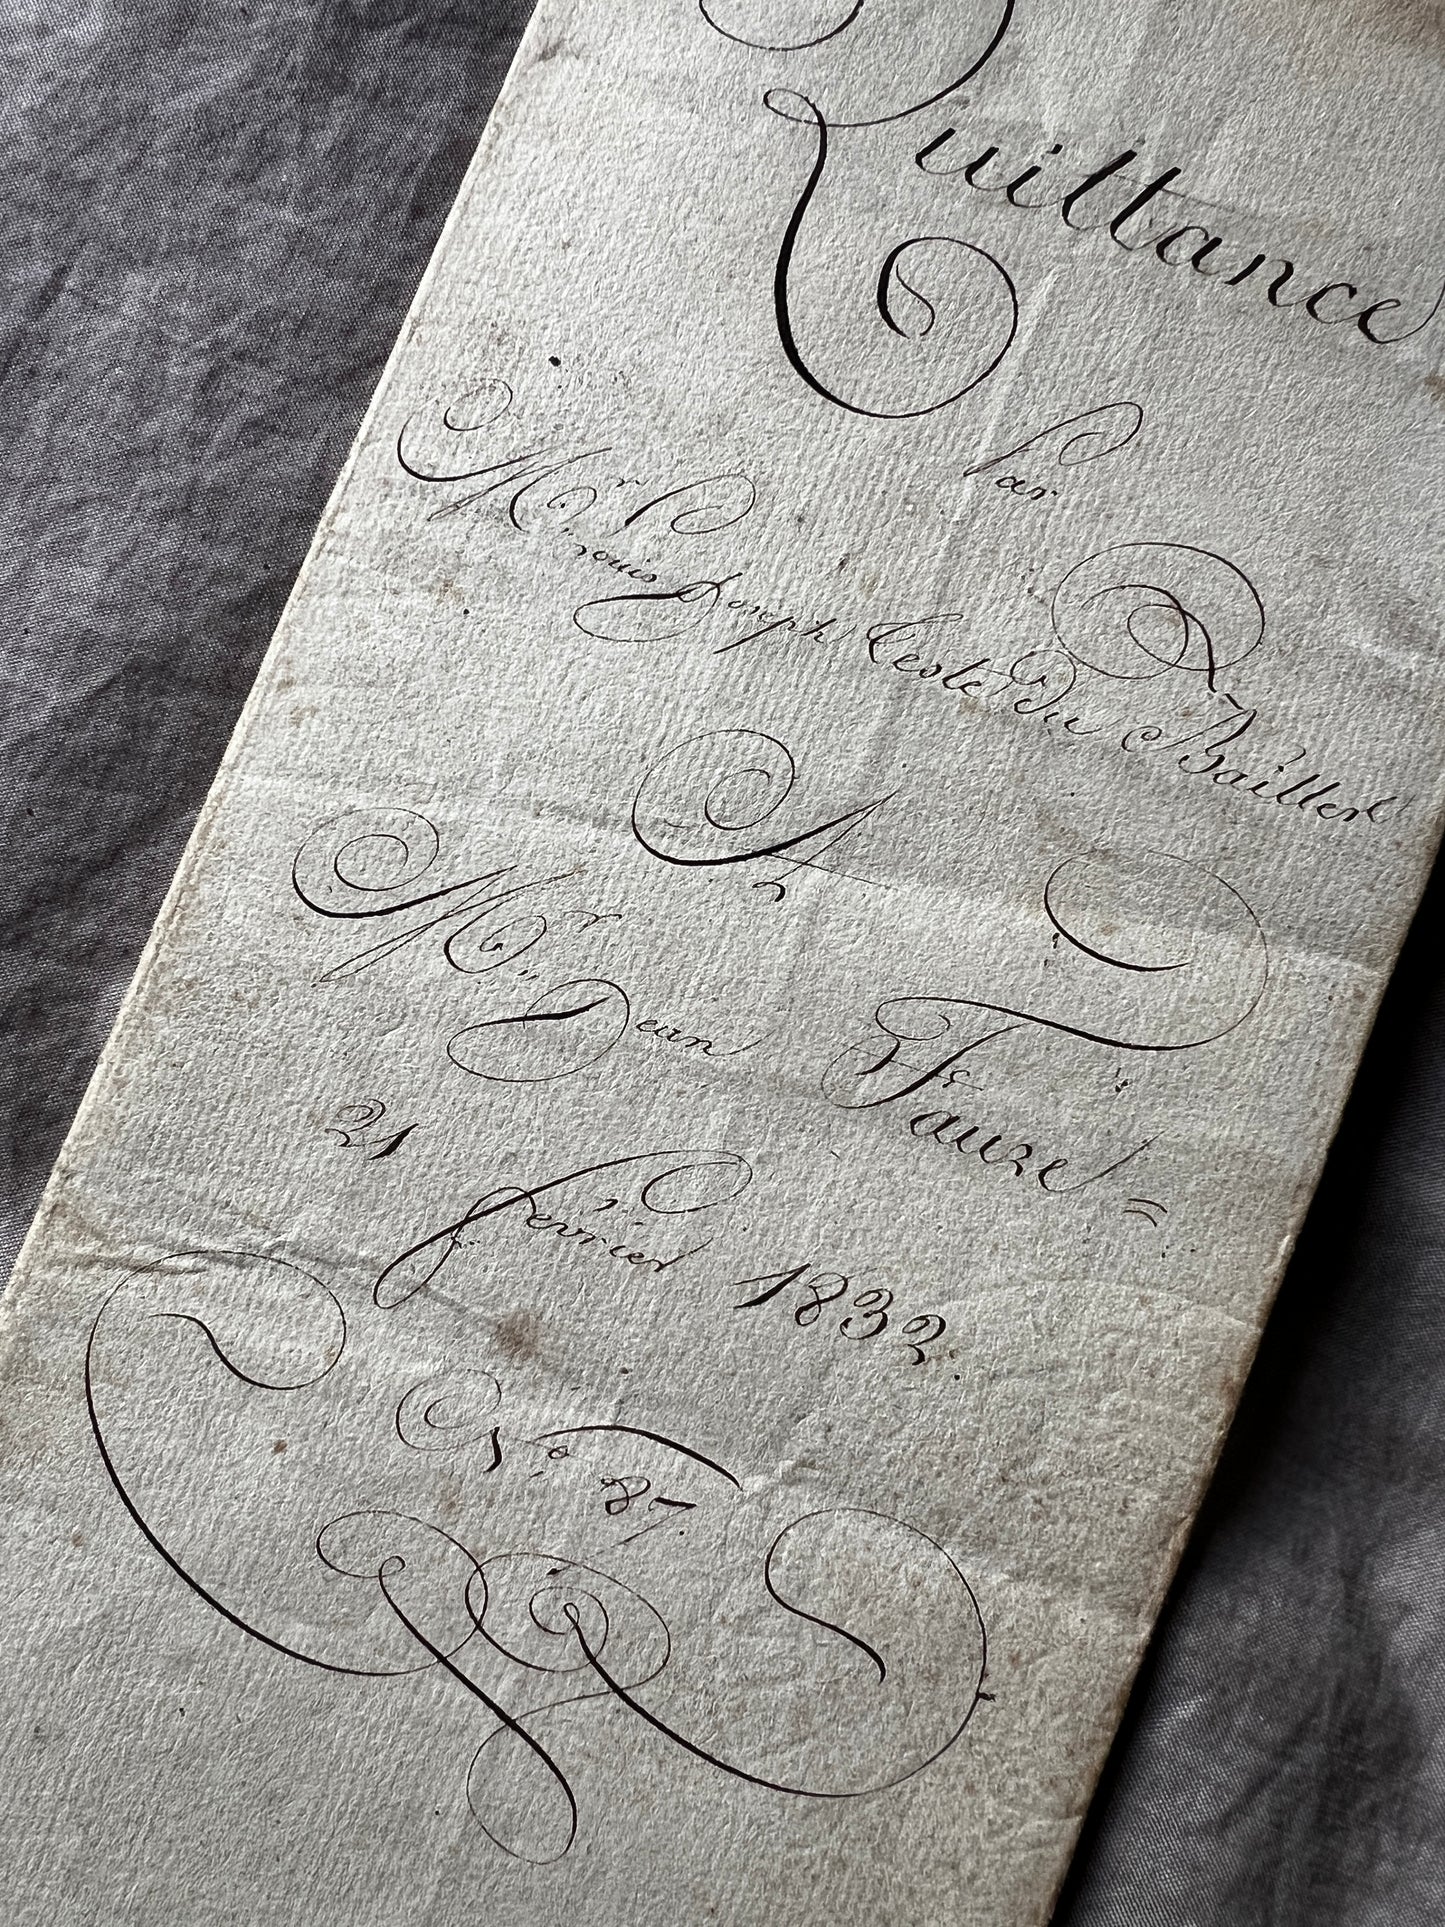 Quittance
Par
Mr. Louis Joseph Teste Du Bailler
A
Mr. Jean Fauze =
21 février 1832.
No. 87.